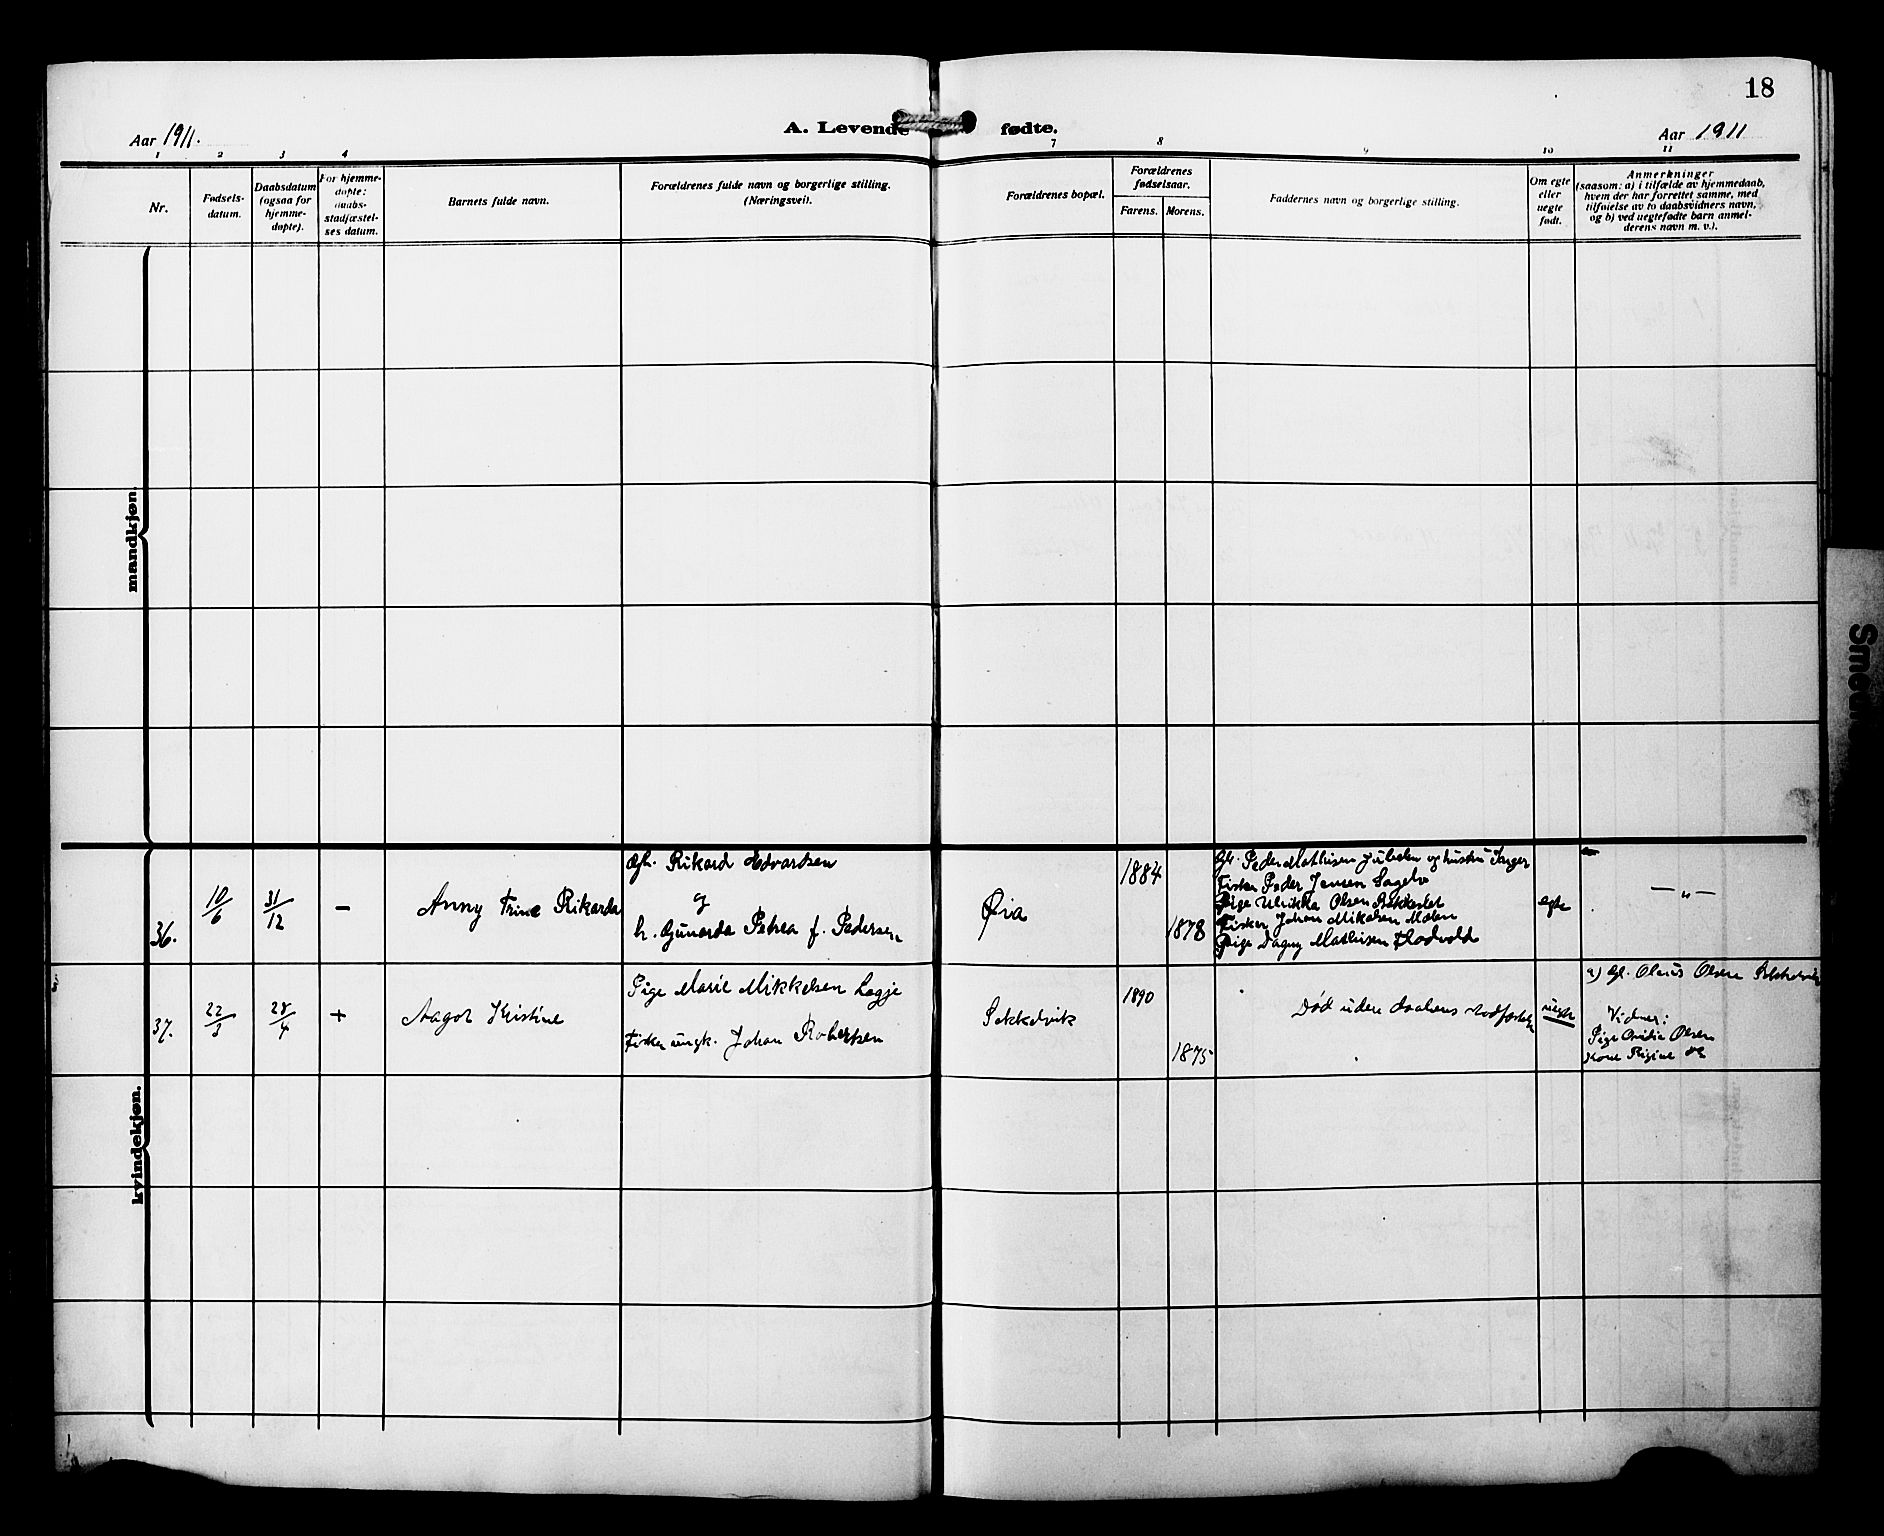 18
Aar 1911.
A. Levende fødte.
Aar 1911
1 2 3 4 7 8 9 10 11
Nr.
Fødsels-
datum.
Daabsdatum
(ogsaa for
hjemme-
døpte).
For hjemme-
døpte:
daabs-
stadfæstel-
ses datum.
Barnets fulde navn.
Forældrenes fulde navn og borgerlige stilling.
(Næringsvei).
Forældrenes bopæl.
Forældrenes
fødselsaar.
Farens.
Morens.
Faddernes navn og borgerlige stilling.
Om egte
eller
uegte
født.
Anmerkninger
(saasom: a) i tilfælde av hjemmedaab,
hvem der har forrettet samme, med
tilføielse av to daabsvidners navn,
og b) ved uegtefødte barn anmel-
derens navn m. v.).
mandkjøn.
kvindekjøn.
36.
10/6
31/12
–
Anny Trine Rikarda
Gjh. Rikard Edvardsen
og
h. Gunarda Petrea f. Pedersen
Øia
1884
1878
Peder Mathisen og hustru Inger
Fisker Peder Jensen
Pige Ulrikka Olsen
Fisker Johan Mikalsen
Pige Dagny Mathisen
egte
— „ —
37.
22/3
28/4
+
Aagot Kristine
Pige Marie Mikkelsen
Fisker ungk. Johan Robertsen
Sekkelvik
1890
1875
Død uden daabens stadfæstelse
uegte
a) Olaus Olsen
Vidner:
Pige Olsen
Kone